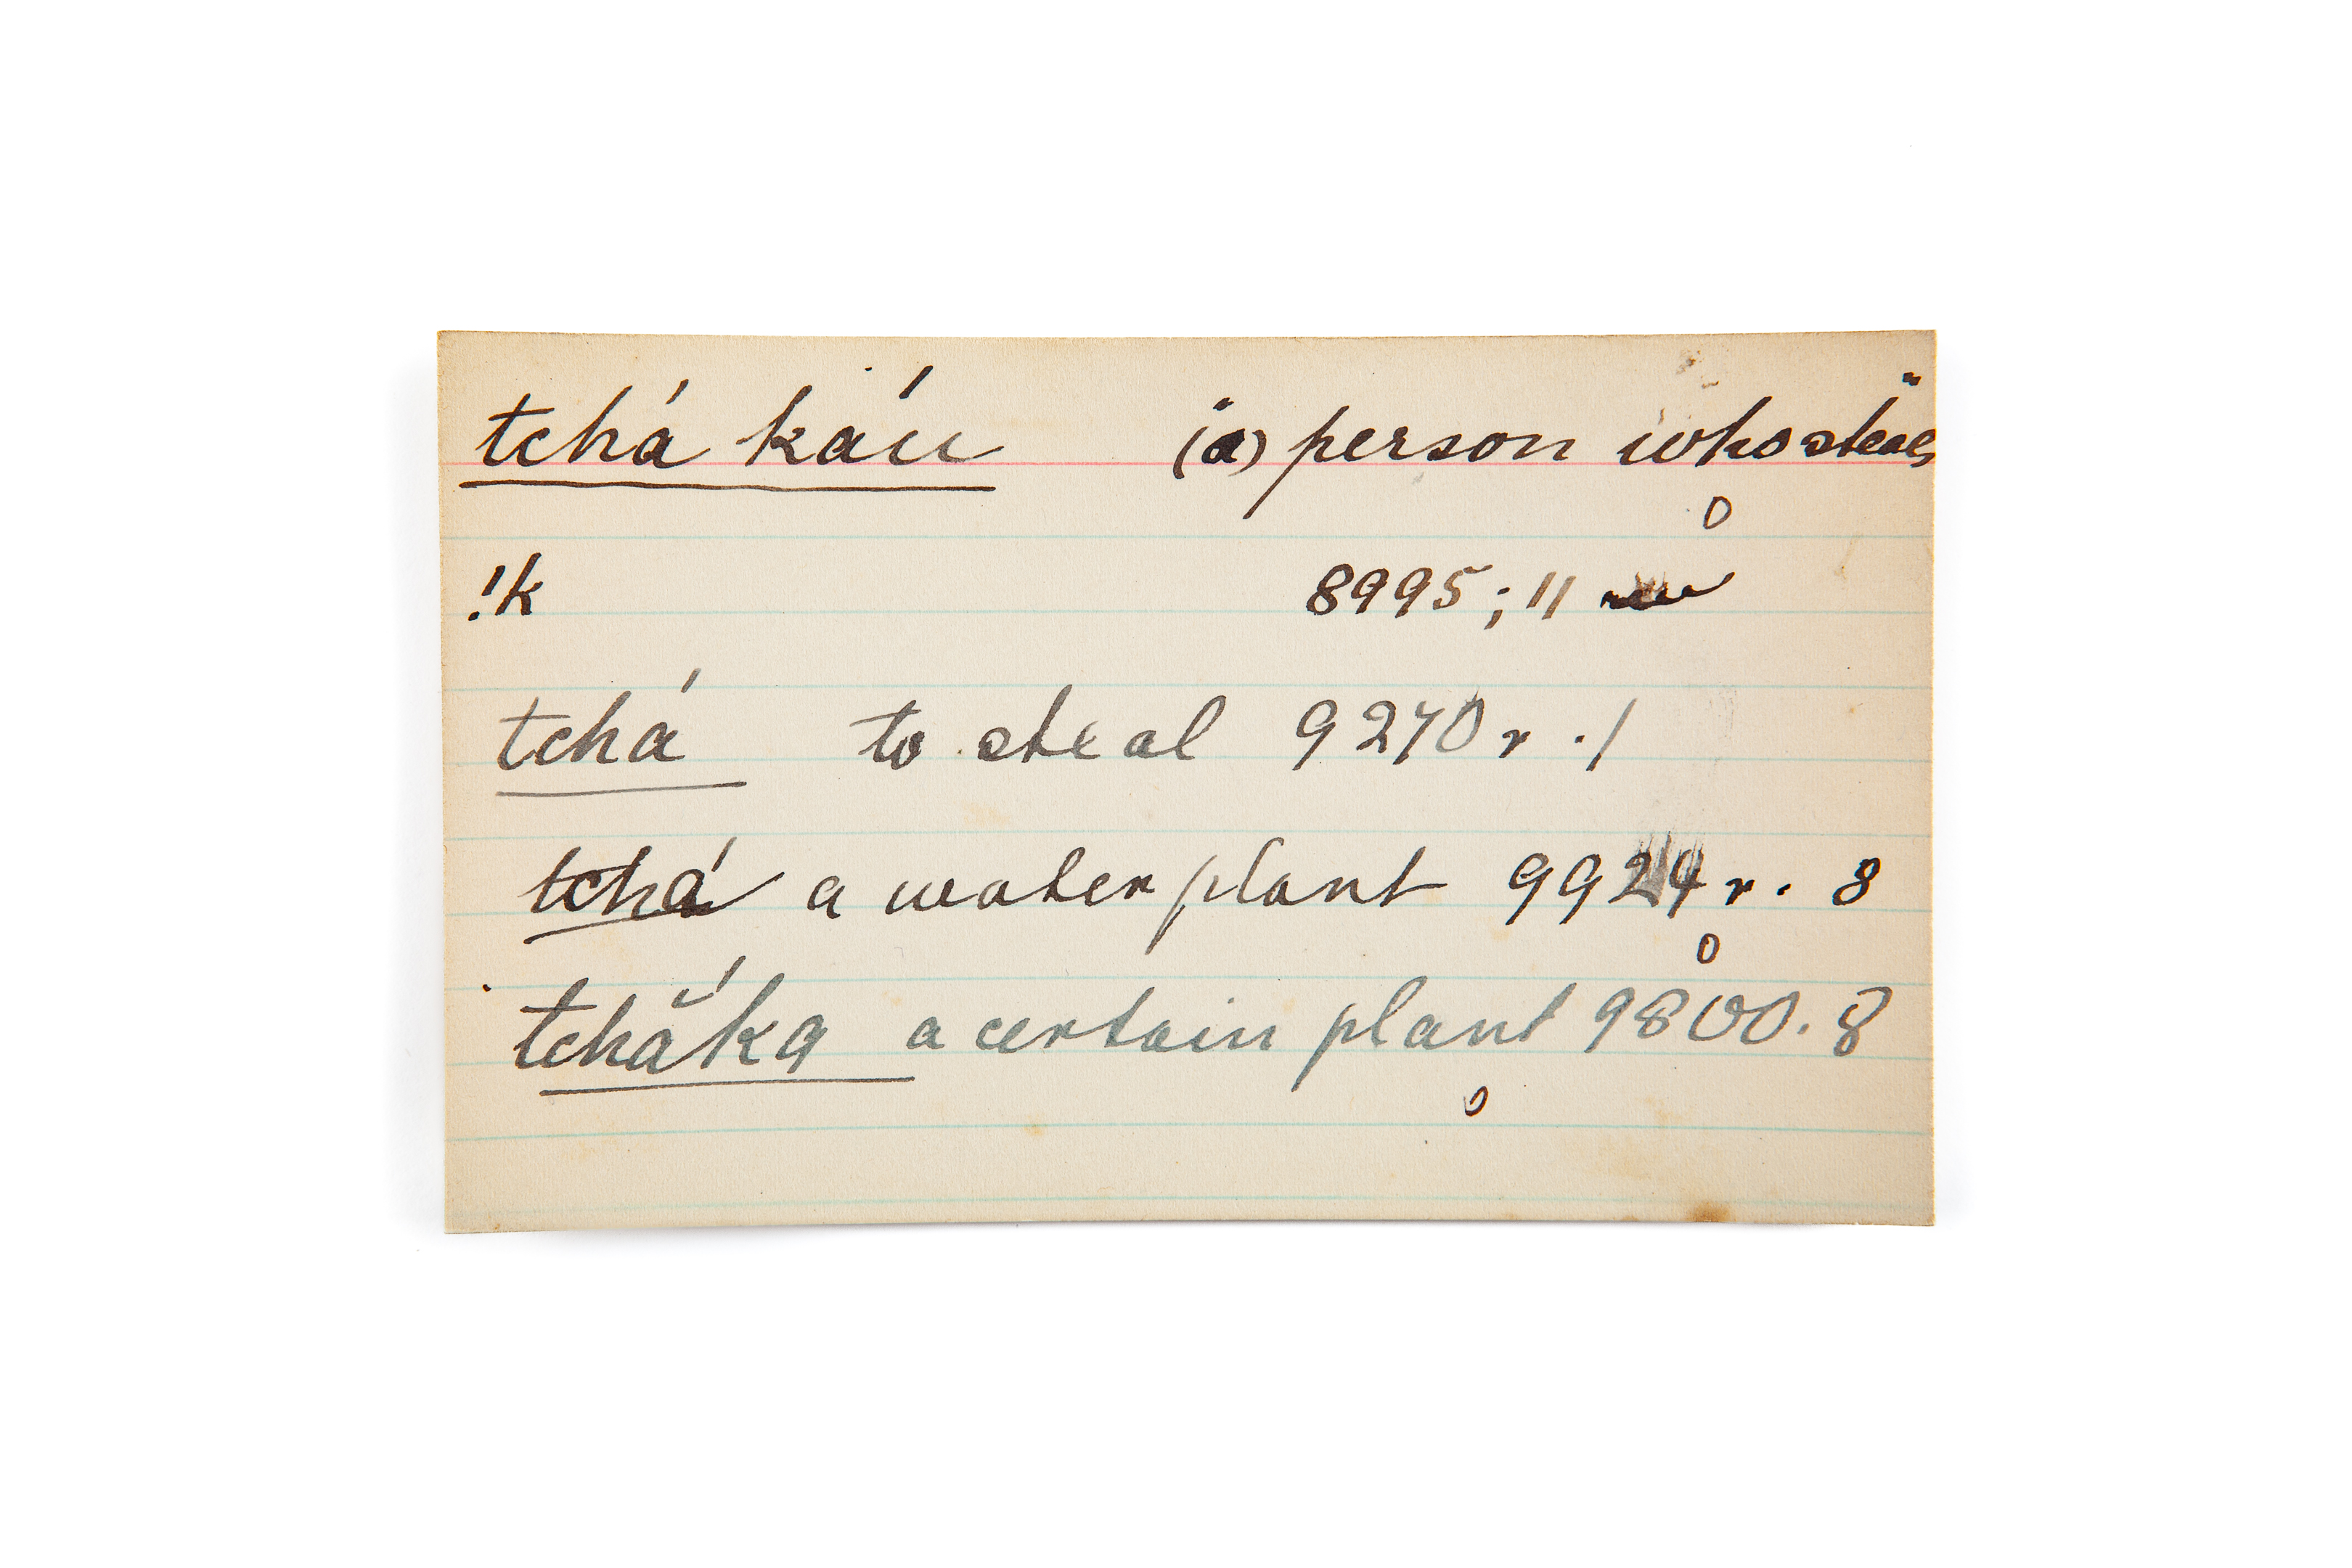 tchá káu (a) person who steals
!k 8995; 11
tchá to steal 9270 r. 1
tchá a water plant 9924 r. 8
tchắka a certain plant 9800. 8